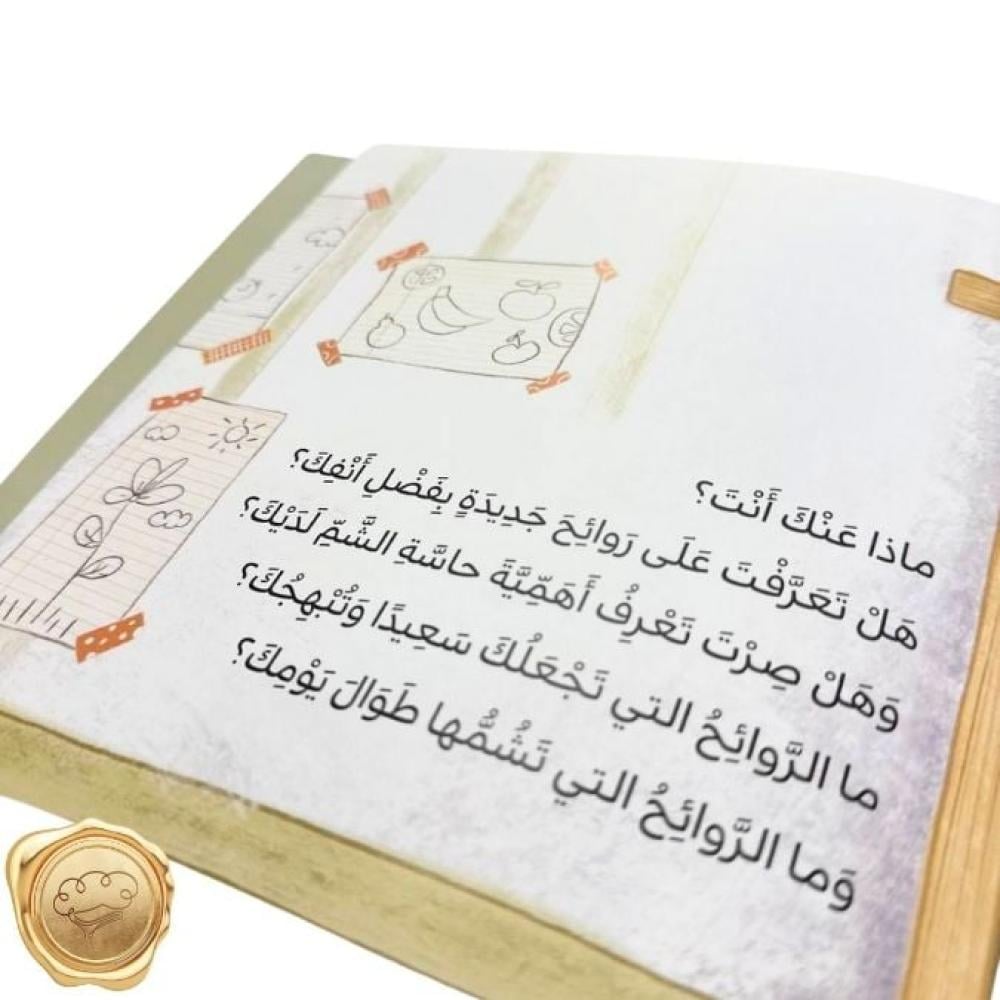 ماذا عَنْكَ أَنْتَ؟
هَلْ تَعَرَّفْتَ عَلَى رَوائِحَ جَدِيدَةٍ بِفَضْلِ أَنْفِكَ؟
وَهَلْ صِرْتَ تَعْرِفُ أَهَمِّيَّةَ حاسَّةِ الشَّمِّ لَدَيْكَ؟
ما الرَّوائِحُ التي تَجْعَلُكَ سَعِيدًا وَتُبْهِجُكَ؟
وَما الرَّوائِحُ التي تَشُمُّها طَوَالَ يَوْمِكَ؟